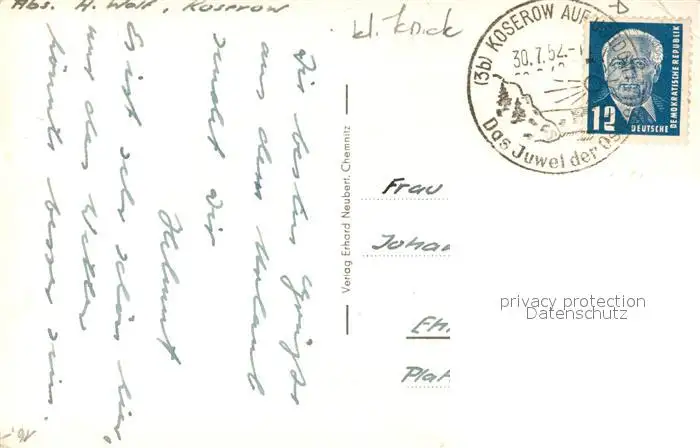 Abs. H. Wolf, Koserow
kl. Knick
(3b) KOSEROW AUF USEDOM
30.7.52.-1
Das Juwel der Os
DEUTSCHE
DEMOKRATISCHE REPUBLIK
12
DEUTSCHE
Die besten Grüße
aus dem Urlaub
sendet Dir
Helmut
Es ist sehr schön hier,
nur das Wetter
könnte besser sein.
Verlag Erhard Neubert, Chemnitz
Frau
Johan
Eh
Plat
privacy protection
Datenschutz
16,-